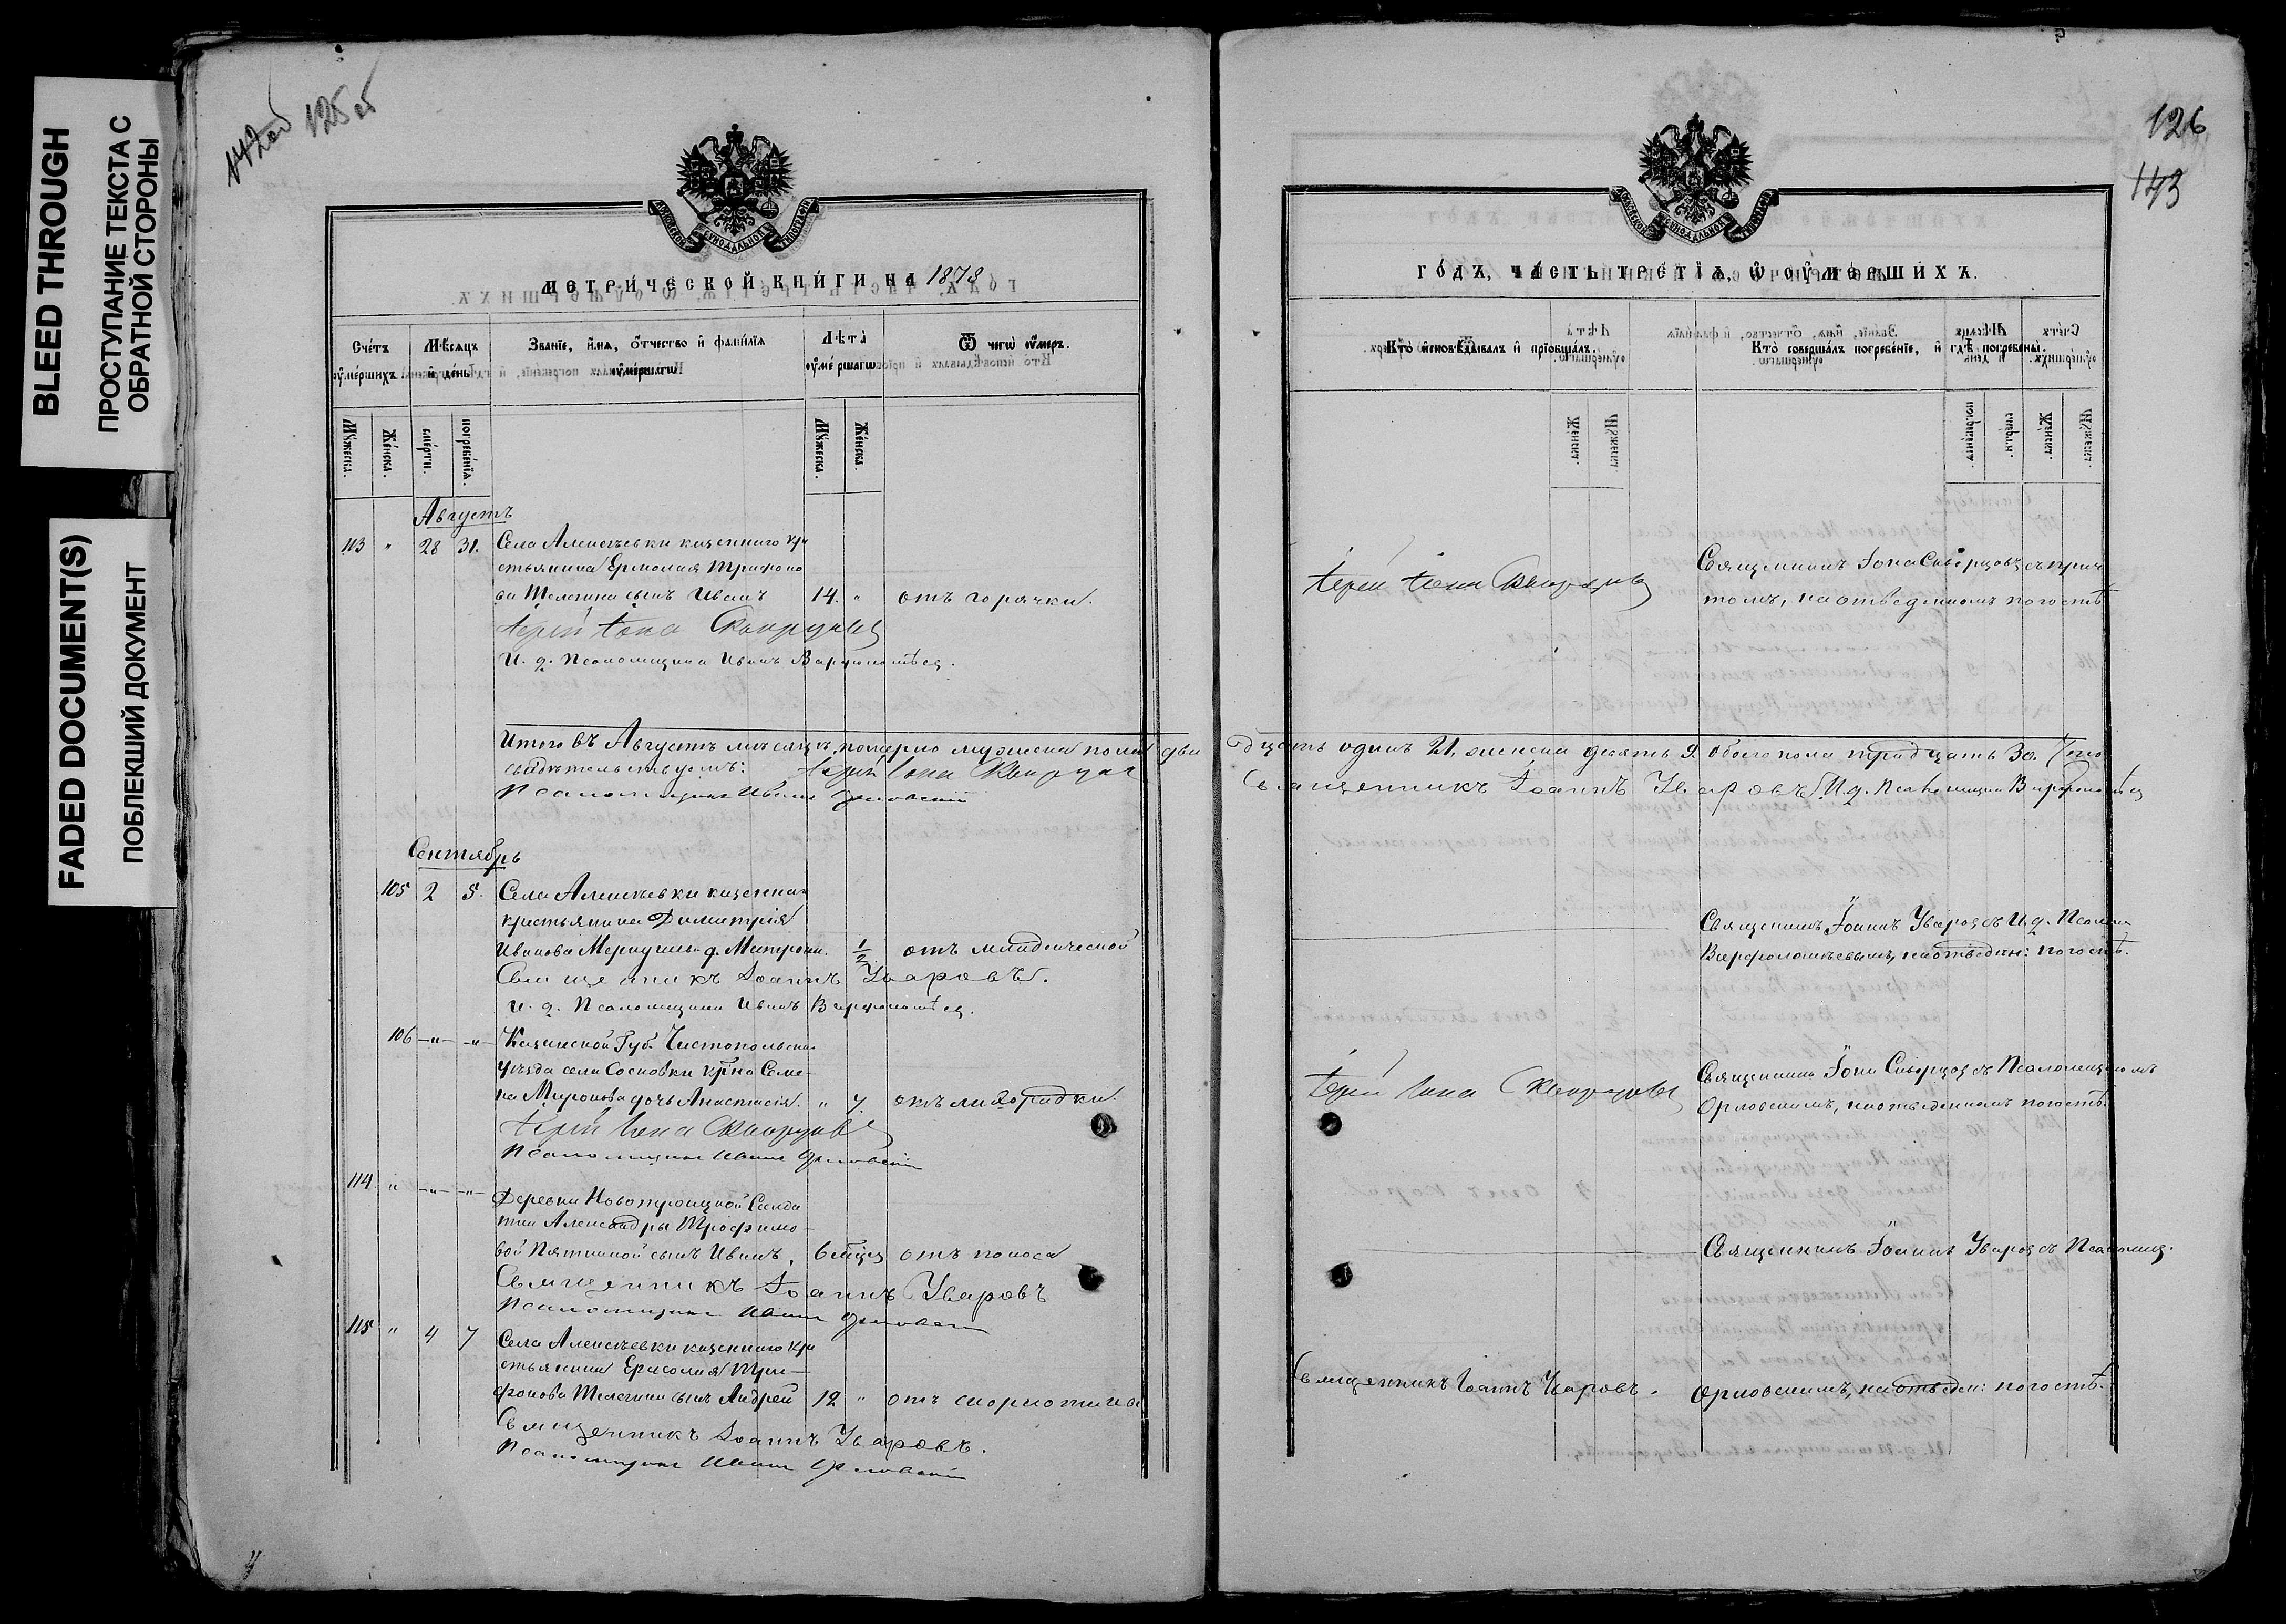 BLEED THROUGH
ПРОСТУПАНИЕ ТЕКСТА С
ОБРАТНОЙ СТОРОНЫ
FADED DOCUMENT(S)
ПОБЛЕКШИЙ ДОКУМЕНТ
142об 125об
МЕТРИЧЕСКОЙ КНИГИ НА 1878
Счетъ
умершихъ
Мѣсяцъ
и день
Званіе, имя, отчество и фамилія
умершагw
Лѣта
умершагw
Ѿ чегw умеръ.
Мужеска.
Женска.
смерти.
погребенія.
Мужеска.
Женска.
Августъ
113 " 28 31. Села Алексѣевки казеннаго кре
стьянина Ермолая Трифоно
ва Телегина сынъ Иванъ 14. " отъ горячки.
Іерей Іона Скворцовъ
И. д. Псаломщика Иванъ Варфоломѣев.
Итого въ Августѣ мѣсяцѣ померло мужеска пола два
свидѣтельствуемъ: Іерей Іона Скворцовъ
Псаломщикъ Иванъ Орловскій
Сентябрь
105 2 5. Села Алексѣевки казеннаго
крестьянина Димитрія
Иванова д. Матрона. 1/2 отъ младенческой
Священникъ Іоаннъ Уваровъ.
И. д. Псаломщика Иванъ Варфоломѣев.
106 -"- -"- Казанской Губ. Чистопольскаго
уѣзда села Сосновки кр-на Семе-
на Миронова дочь Анастасія. " 7. отъ лихорадки.
Іерей Іона Скворцовъ
Псаломщикъ Иванъ Орловскій
114 " -"- -"- Деревни Новотроицкой Солда
тки Александры Трофимо-
вой Пяткиной сынъ Иванъ. 6 мѣсяц отъ поноса
Священникъ Іоаннъ Уваровъ
Псаломщикъ Иванъ Орловскій
115 " 4 7 Села Алексѣевки казеннаго кре
стьянина Ермолая Три-
фонова Телегина сынъ Андрей 12 " отъ
Священникъ Іоаннъ Уваровъ.
Псаломщикъ Иванъ Орловскій
126
143
ГОДЪ, ЧАСТЬ ТРЕТІЯ, Ѡ УМЕРШИХЪ.
Кто исповѣдывалъ и пріобщалъ.
Кто совершалъ погребеніе, и гдѣ погребены.
Іерей Іона Скворцовъ
Священникъ Іона Скворцовъ съ прич
томъ, на отведенномъ погостѣ
дцать одинъ 21, женска девять 9. Обоего пола тридцать 30. Что
Священникъ Іоаннъ Уваровъ И. д. Псаломщика Варфоломѣев
Священникъ Іоаннъ Уваровъ съ И. д. Псалом
Варфоломѣевымъ, на отведен: погостѣ.
Іерей Іона Скворцовъ
Священникъ Іона Скворцовъ съ Псаломщикомъ
Орловскимъ, на отведенномъ погостѣ.
Священникъ Іоаннъ Уваровъ съ Псаломщ.
Священникъ Іоаннъ Уваровъ.
Орловскимъ, на отведен: погостѣ.